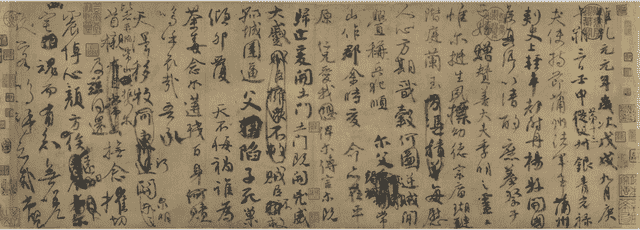 維乾元元年歲次戊戌九月庚
午朔三日壬申第十三叔銀青光祿
夫使持節蒲州諸軍事蒲州
刺史上輕車都尉丹楊縣開國
侯真卿以清酌庶羞祭于
亡姪贈贊善大夫季明之靈曰
惟爾挺生夙標幼德宗廟瑚璉
階庭蘭玉每慰
人心方期戩穀何圖逆賊閒
釁稱兵犯順爾父竭誠常
山作郡余時受命亦在平
原仁兄愛我俾爾傳言爾既
歸止爰開土門土門既開凶威
大蹙賊臣不救
孤城圍逼父陷子死巢
傾卵覆天不悔禍誰為
荼毒念爾遘殘百身何贖
嗚呼哀哉吾承
天澤移牧河關泉明
比者再陷常山攜爾
首櫬及茲同還撫念摧切
震悼心顏方俟遠日
卜爾幽宅魂而有知無嗟
久客嗚呼哀哉尚饗